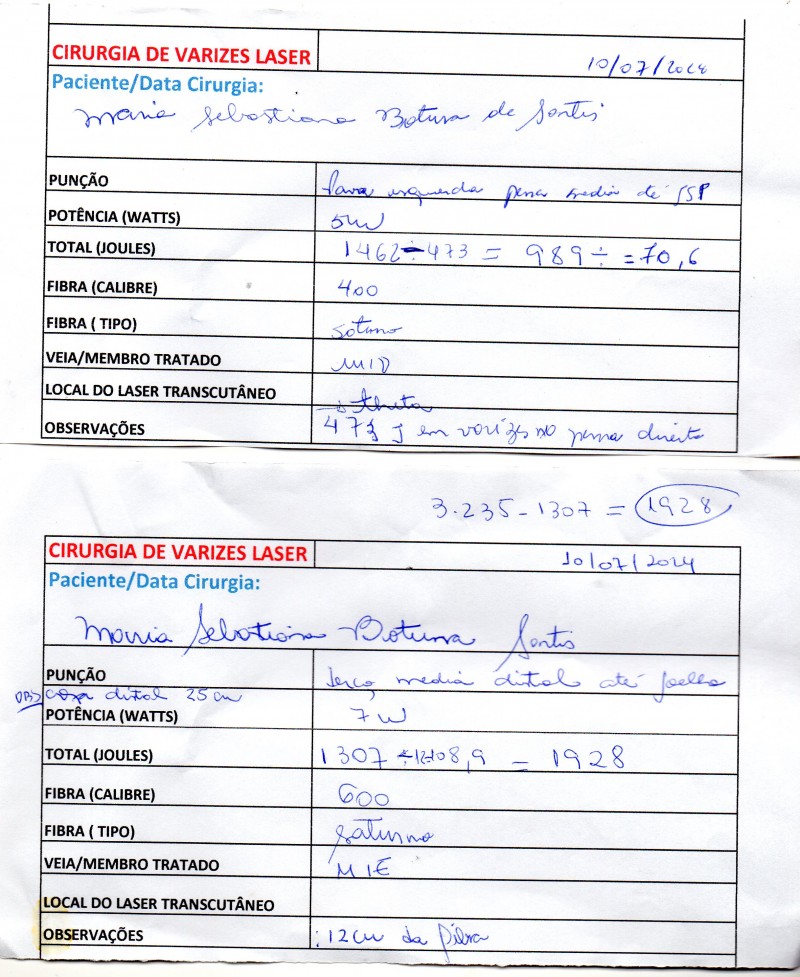 CIRURGIA DE VARIZES LASER 10/07/2024
Paciente/Data Cirurgia:
Maria Sebastiana Botura de Santis
PUNÇÃO esquerda perna media até JSP
POTÊNCIA (WATTS) 5W
TOTAL (JOULES) 1462 - 473 = 989 ÷ = 70,6
FIBRA (CALIBRE) 400
FIBRA ( TIPO)
VEIA/MEMBRO TRATADO MID
LOCAL DO LASER TRANSCUTÂNEO
OBSERVAÇÕES 473 J em varizes na perna direita
3.235 - 1307 = 1928
CIRURGIA DE VARIZES LASER 10/07/2024
Paciente/Data Cirurgia:
Maria Sebastiana Botura Santis
PUNÇÃO terço media distal até joelho
OBS coxa distal 25 cm
POTÊNCIA (WATTS) 7W
TOTAL (JOULES) 1307 ÷ 12 108,9 = 1928
FIBRA (CALIBRE) 600
FIBRA ( TIPO) saturno
VEIA/MEMBRO TRATADO MIE
LOCAL DO LASER TRANSCUTÂNEO
OBSERVAÇÕES : 12cm da fibra